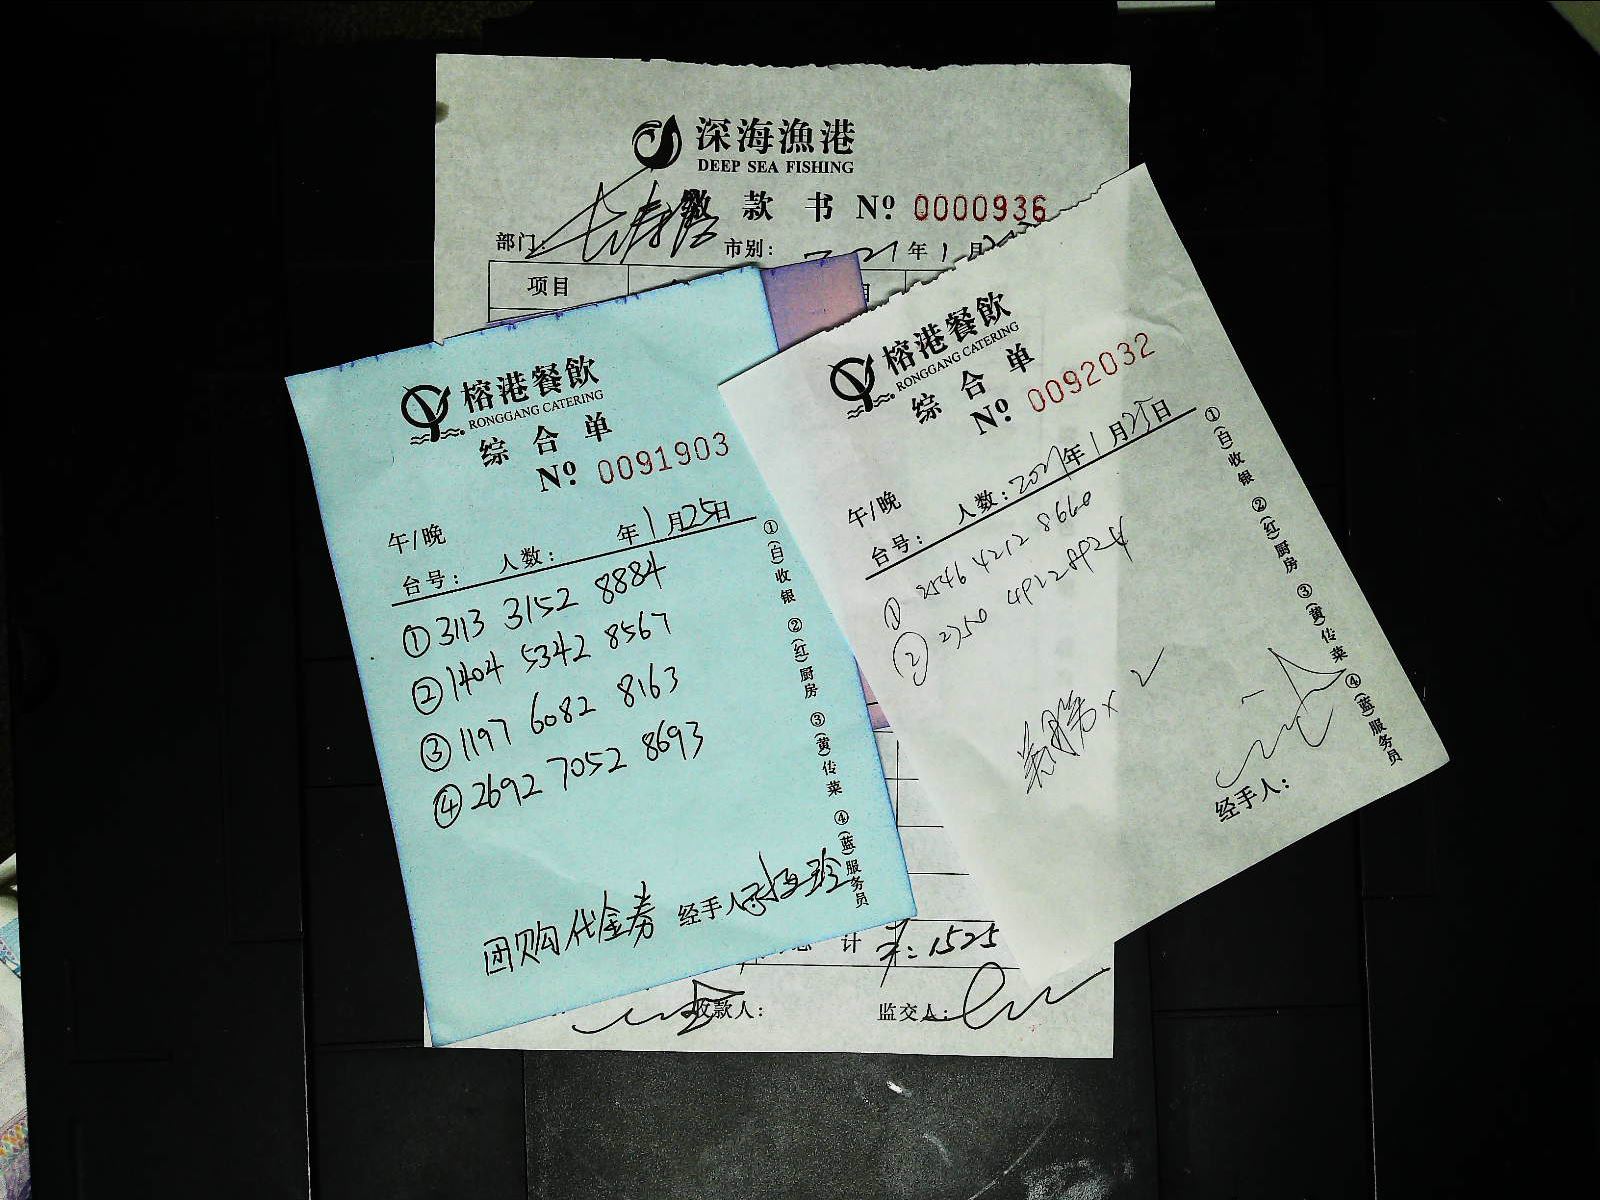 深海漁港
DEEP SEA FISHING
缴 款 书 Nº 0000936
部门: 市别: 2021年1月
项目
榕港餐飲
RONGGANG CATERING
综 合 单
Nº 0091903
午/晚 年1月25日
台号: 人数:
①3113 3152 8884
②1404 5342 8567
③1197 6082 8163
④2692 7052 8693
团购代金券 经手人
①(白)收银 ②(红)厨房 ③(黄)传菜 ④(蓝)服务员
榕港餐飲
RONGGANG CATERING
综 合 单
Nº 0092032
午/晚 2021年1月25日
台号: 人数:
① 2546 4212 8660
② 2750 4912 8924
经手人:
①(白)收银 ②(红)厨房 ③(黄)传菜 ④(蓝)服务员
总 计 1525
收款人: 监交人: